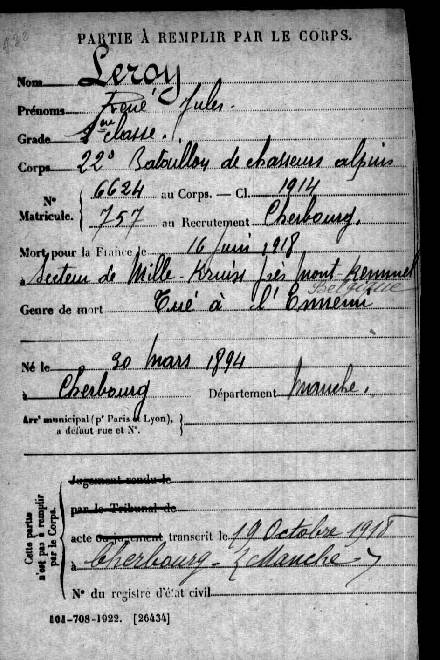 PARTIE À REMPLIR PAR LE CORPS.
Nom Leroy
Prénoms René Jules.
Grade 2me classe.
Corps 22e Bataillon de chasseurs alpins
N° Matricule. { 6624 au Corps. — Cl. 1914
757 au Recrutement Cherbourg.
Mort pour la France le 16 Juin 1918
à Secteur de Mille-Kruiss près Mont-Kemmel
Belgique
Genre de mort Tué à l'Ennemi
Né le 30 Mars 1894
à Cherbourg Département Manche.
Arrt municipal (pr Paris et Lyon), à défaut rue et N°. }
Cette partie n'est pas à remplir par le Corps.
Jugement rendu le
par le Tribunal de
acte ou jugement transcrit le 19 Octobre 1918
à Cherbourg - (Manche)
N° du registre d'état civil
101-708-1922. [26434]